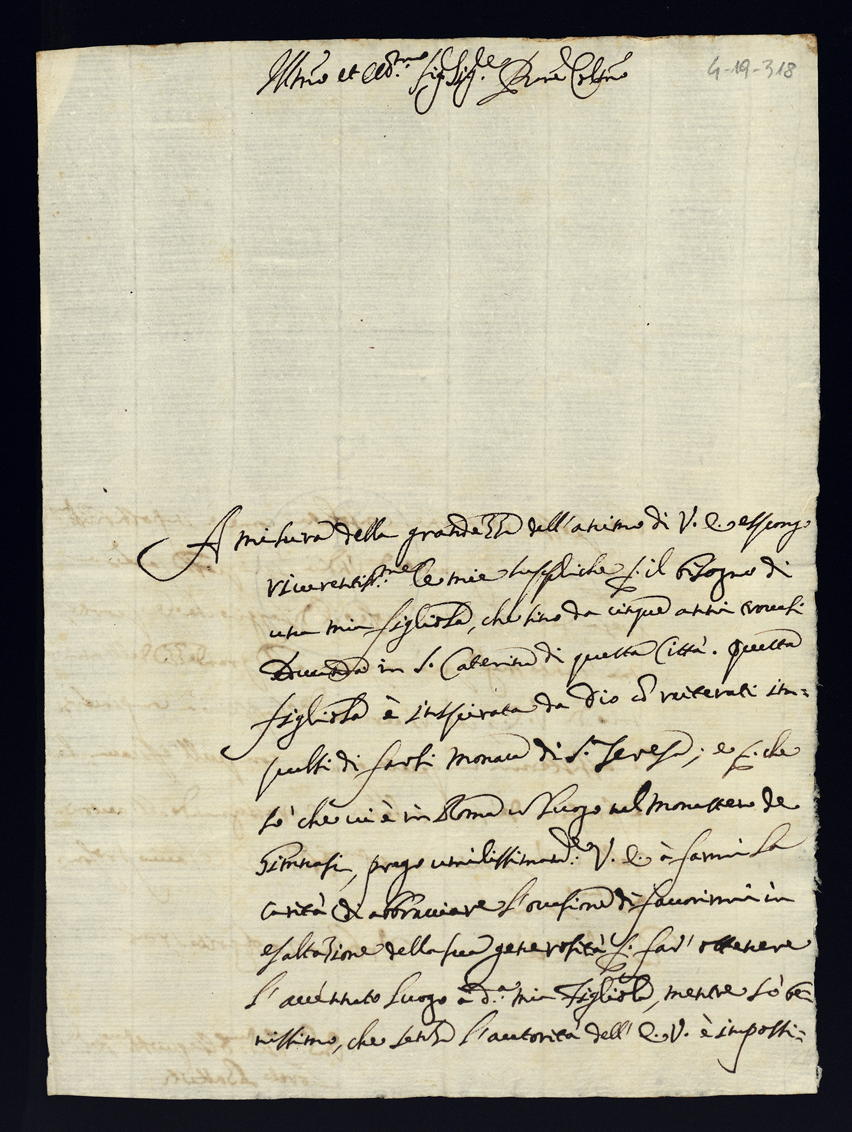 Illmo et Ecc.mo Sig.r Sig.r e Prone Colmo
4-19-318
A misura della grandezza dell'animo di V. E. espongo
riverentiss.me le mie suppliche p. il bisogno di
una mia figliola, che sino da cinque anni trovasi
in S. Caterina di questa Città. Questa
figliola è inspirata da Dio cõ reiterati im=
pulsi di farsi Monaca di S. Teresa; e p. che
sò che vi è in Roma Luogo nel Monastero de
Ginnasi, prego umilissimam.te V. E. à farmi la
carità di abbracciare l'occasione di favorirmi in
esaltazione della sua generosità p. far' ottenere
l'accennato luogo à d.a mia Figliola, mentre sò be=
nissimo, che senza l'autorità dell' E. V. è impossi=